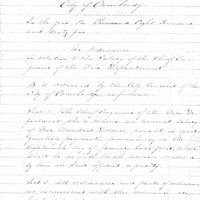 City of Cambridge
In the year One Thousand Eight Hundred
and Sixty five
An Ordinance
in relation to the Salary of the Chief Engi-
neer of the Fire Department
Be it ordained by the City Council of the
City of Cambridge as follows:
Sect. 1. The Chief Engineer of the Fire De-
partment shall receive an annual Salary
of Five Hundred Dollars payable in equal
quarterly payments
day of January last past which
shall be in full for all services rendered
by him in said official capacity.
Sect. 2. All ordinances and parts of ordinances